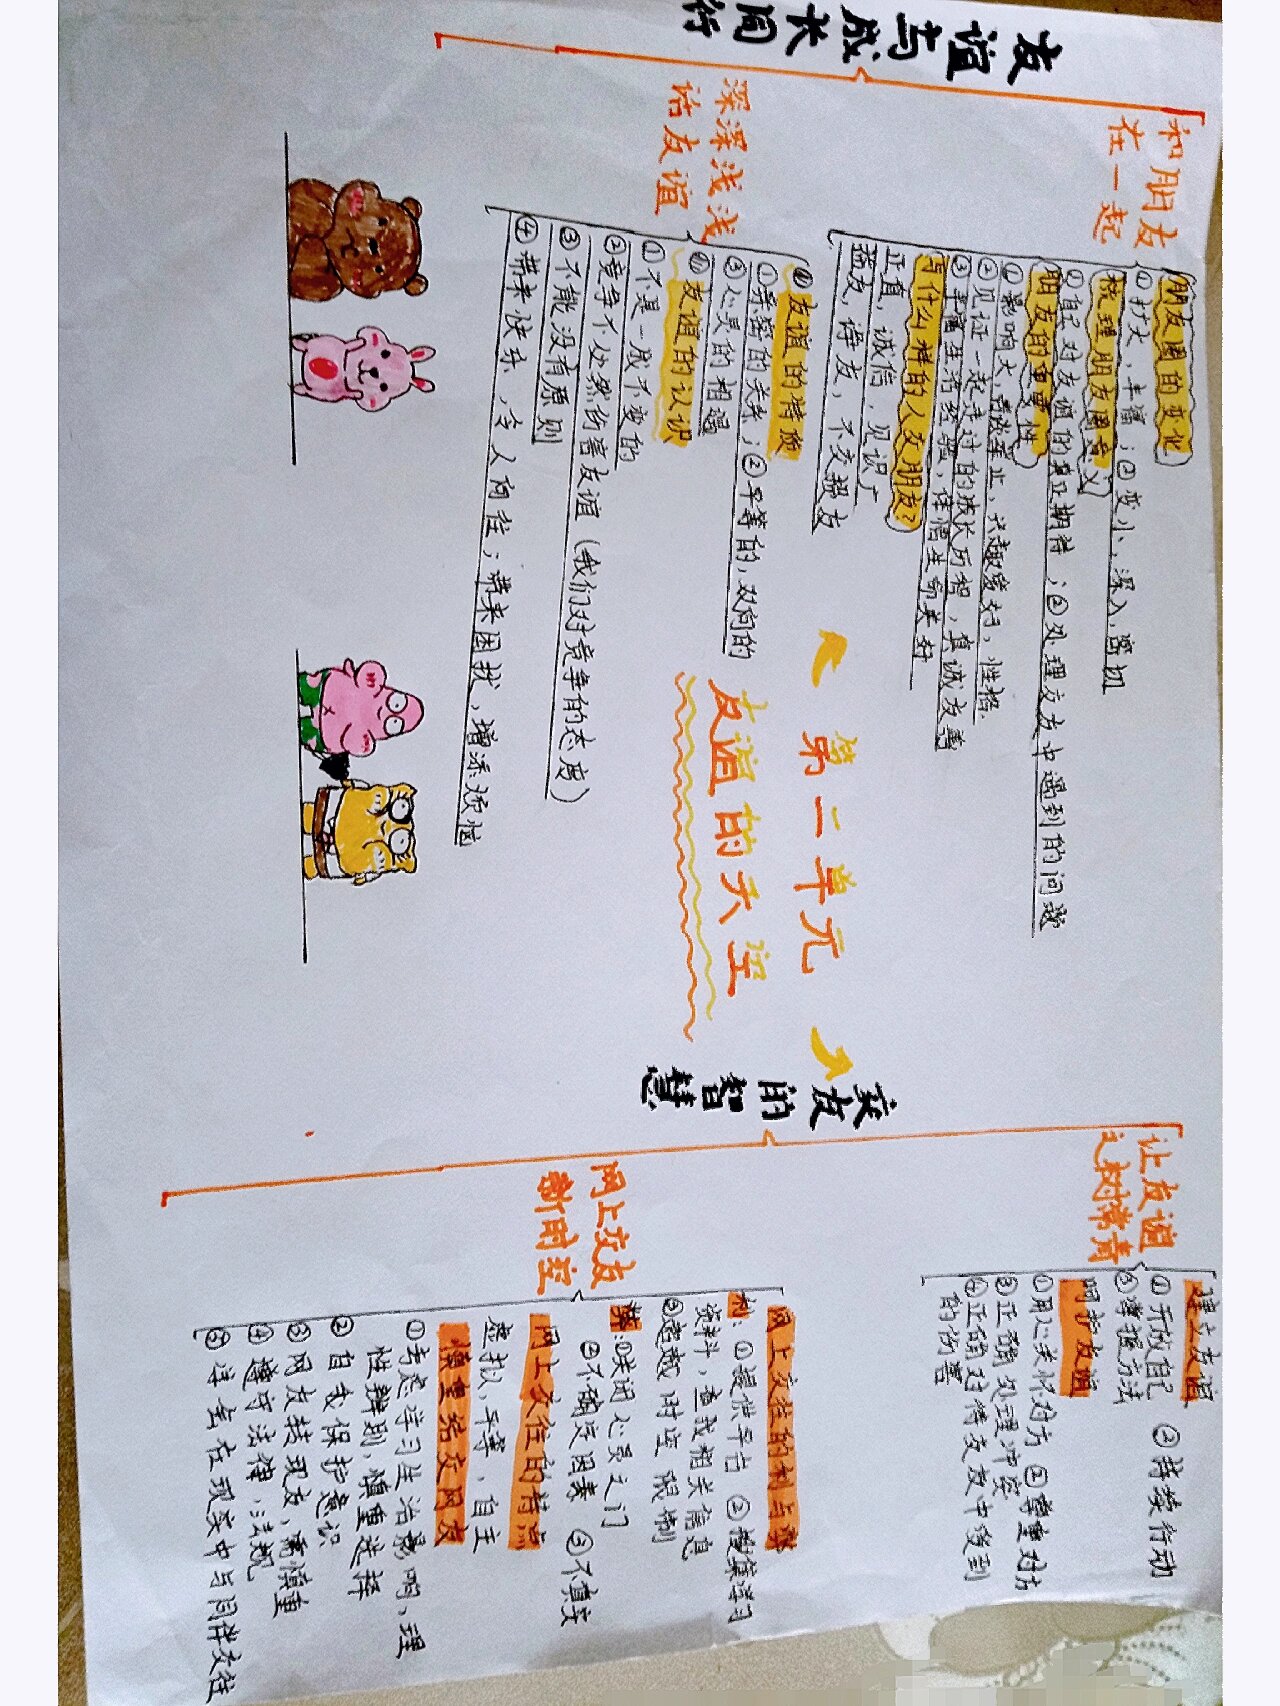 第二单元
友谊的天空
友谊与成长同行
和朋友
在一起
朋友圈的变化
①扩大，丰富；②变小，深入，密切
梳理朋友圈意义
①自己对友谊的真正期待；②处理交友中遇到的问题
朋友的重要性
①影响大，言谈举止，兴趣爱好，性格.
②见证一起走过的成长历程，真诚友善
③丰富生活经验，体悟生命美好
与什么样的人交朋友？
正直，诚信，见识广
益友，诤友，不交损友
深深浅浅
话友谊
①友谊的特质
①亲密的关系；②平等的，双向的
③心灵的相遇
②友谊的认识
①不是一成不变的
②竞争不必然伤害友谊（我们对竞争的态度）
③不能没有原则
④带来快乐，令人向往；带来困扰，增添烦恼
交友的智慧
让友谊
之树常青
建立友谊
①开放自己 ②持续行动
③掌握方法
呵护友谊
①用心关怀对方 ②尊重对方
③正确处理冲突
④正确对待交友中受到
的伤害
网上交友
新时空
网上交往的利与弊
利：①提供平台 ②搜集学习
资料，查找相关信息
③超越时空限制
弊：①关闭心灵之门
②不确定因素 ③不真实
网上交往的特点
虚拟，平等，自主
慎重结交网友
①考虑学习生活影响，理
性辨别，慎重选择
②自我保护意识
③网友转现友，需慎重
④遵守法律，法规
⑤学会在现实中与同伴交往